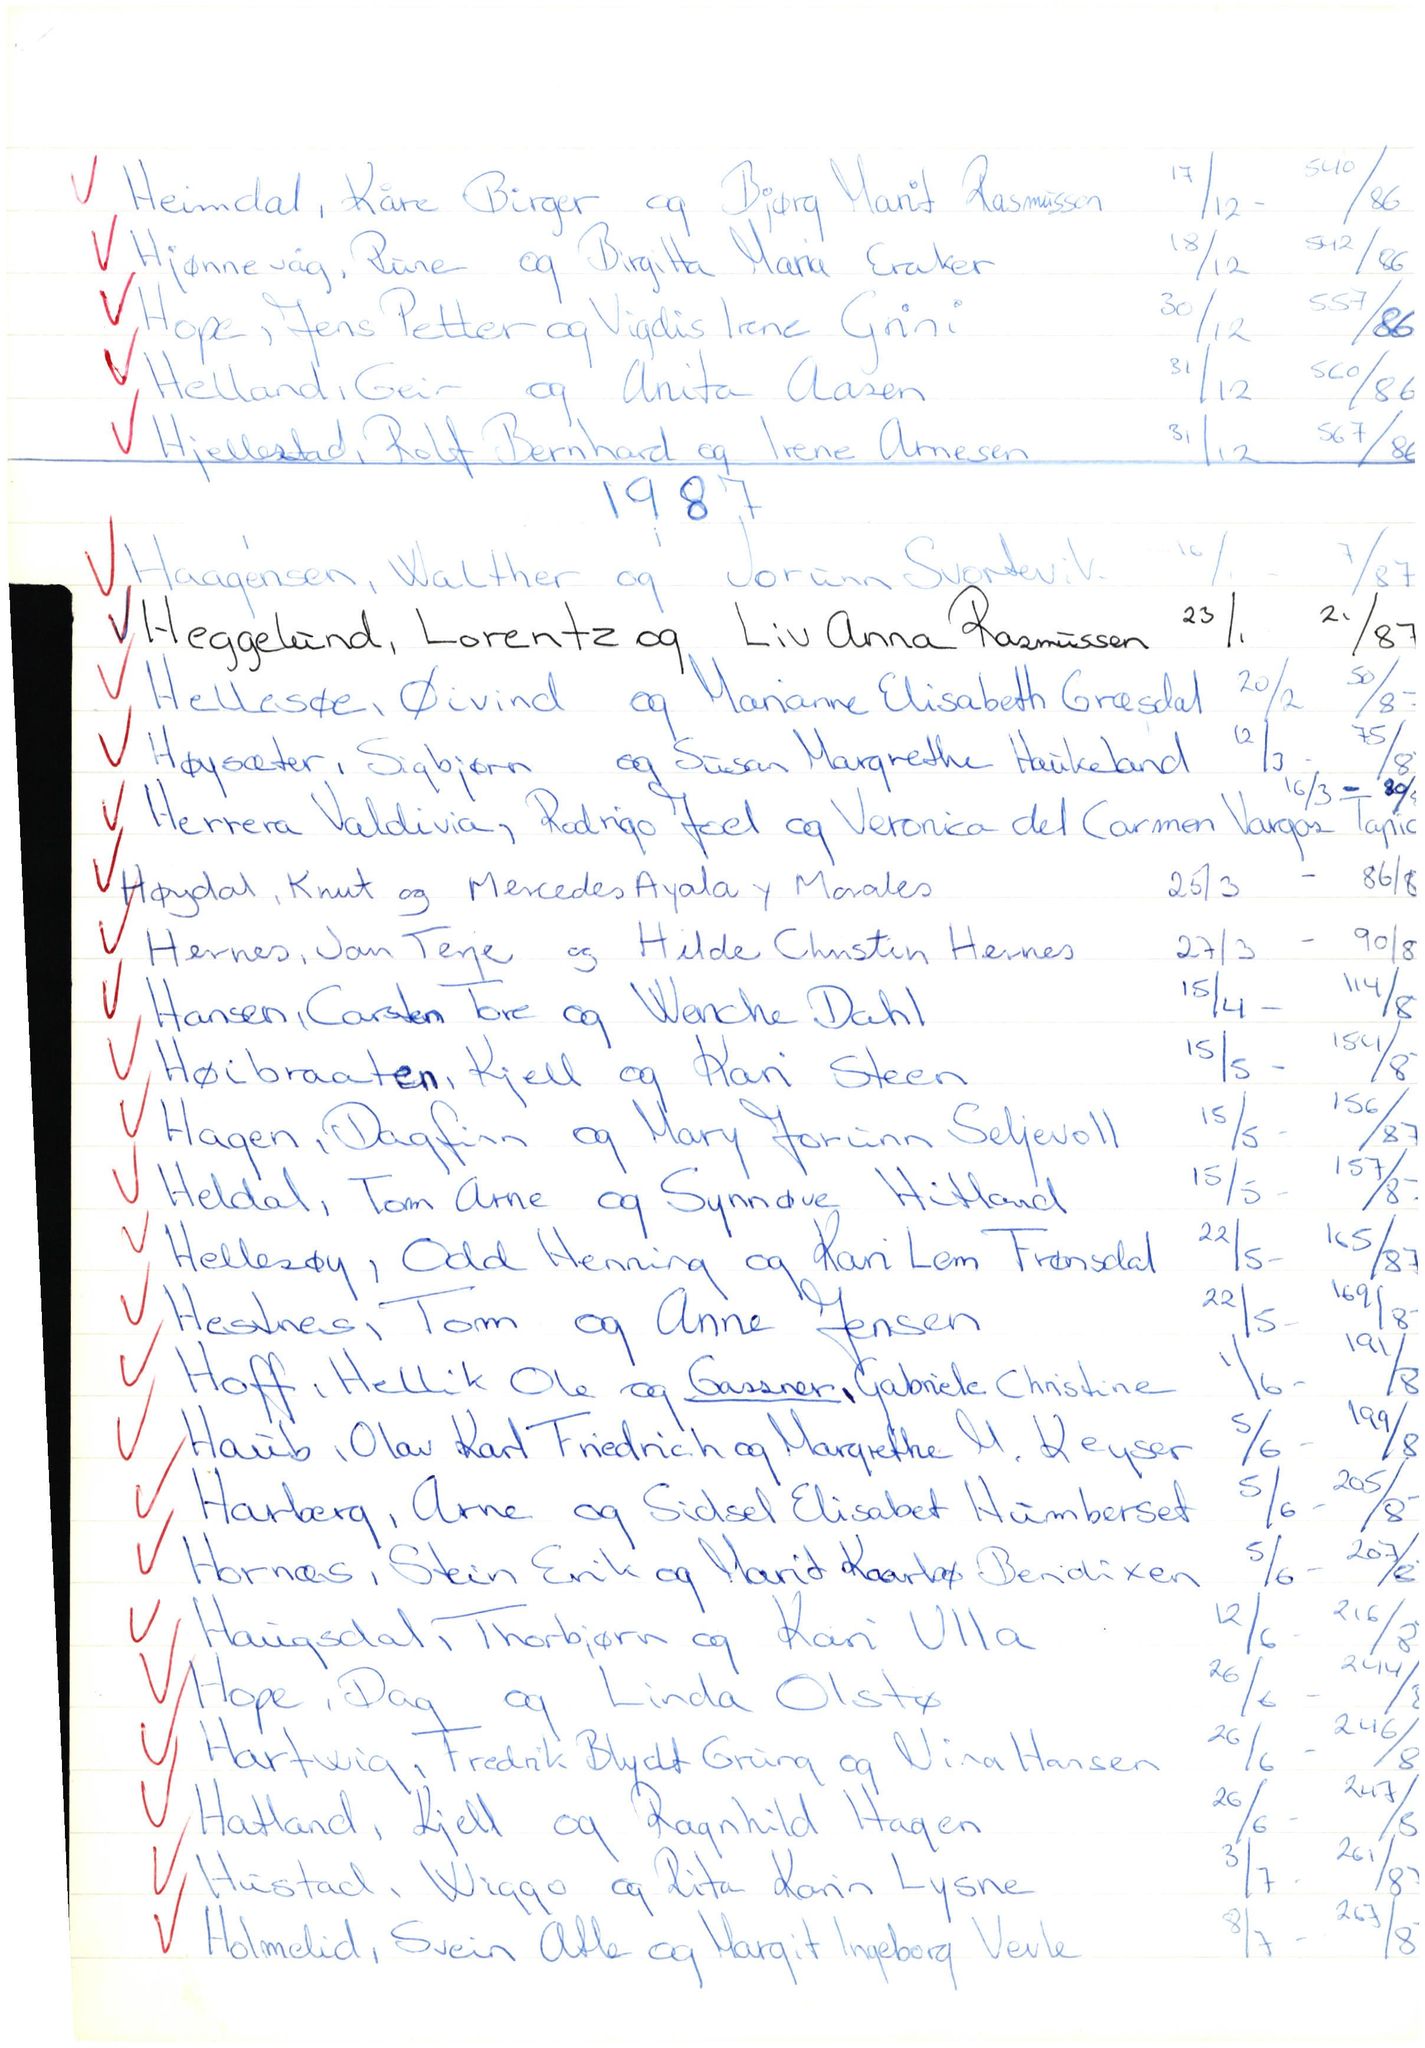 Heimdal, Kåre Birger og Bjørg Marit Rasmussen 17/12 - 540/86
Hjønnevåg, Rune og Birgitta Maria Eraker 18/12 542/86
Hope, Jens Petter og Vigdis Irene Grini 30/12 557/86
Helland, Geir og Anita Aasen 31/12 560/86
Hjellestad, Rolf Bernhard og Irene Arnesen 31/12 567/86
1987
Haagensen, Walther og Jorunn Svortevik 16/1 - 7/87
Heggelund, Lorentz og Liv Anna Rasmussen 23/1 21/87
Hellesøe, Øivind og Marianne Elisabeth Græsdal 20/2 50/8
Høysæter, Sigbjørn og Susan Margrethe Haukeland 12/3 - 75/8
16/3 - 80/
Herrera Valdivia, Rodrigo Joel og Veronica del Carmen Vargas Tapic
Høydal, Knut og Mercedes Ayala y Morales 25/3 - 86/8
Hernes, Jan Terje og Hilde Christin Hernes 27/3 - 90/8
Hansen, Carsten Tore og Wenche Dahl 15/4 - 114/8
Høibraaten, Kjell og Kari Steen 15/5 - 154/8
Hagen, Dagfinn og Mary Jorunn Seljevoll 15/5 - 156/87
Heldal, Tom Arne og Synnøve Hitland 15/5 - 157/8
Hellesøy, Odd Henning og Kari Lem Frønsdal 22/5 - 165/87
Hestnes, Tom og Anne Jensen 22/5 - 169/8
Hoff, Hellik Ole og Gassner, Gabriele Christine 1/6 - 191/8
Haub, Olav Karl Friedrich og Margrethe M. Keyser 5/6 - 199/8
Harberg, Arne og Sidsel Elisabet Humberset 5/6 - 205/8
Hornæs, Stein Erik og Marit Kaarbø Bendixen 5/6 - 207/8
Haugsdal, Thorbjørn og Kari Ulla 12/6 - 216/8
Hope, Dag og Linda Olstø 26/6 - 244/8
Hartwig, Fredrik Blydt Grung og Nina Hansen 26/6 - 246/8
Hatland, Kjell og Ragnhild Hagen 26/6 - 247/8
Hustad, Wiggo og Rita Karin Lysne 3/7 - 261/87
Holmelid, Svein Atle og Margit Ingeborg Vevle 8/7 - 263/8